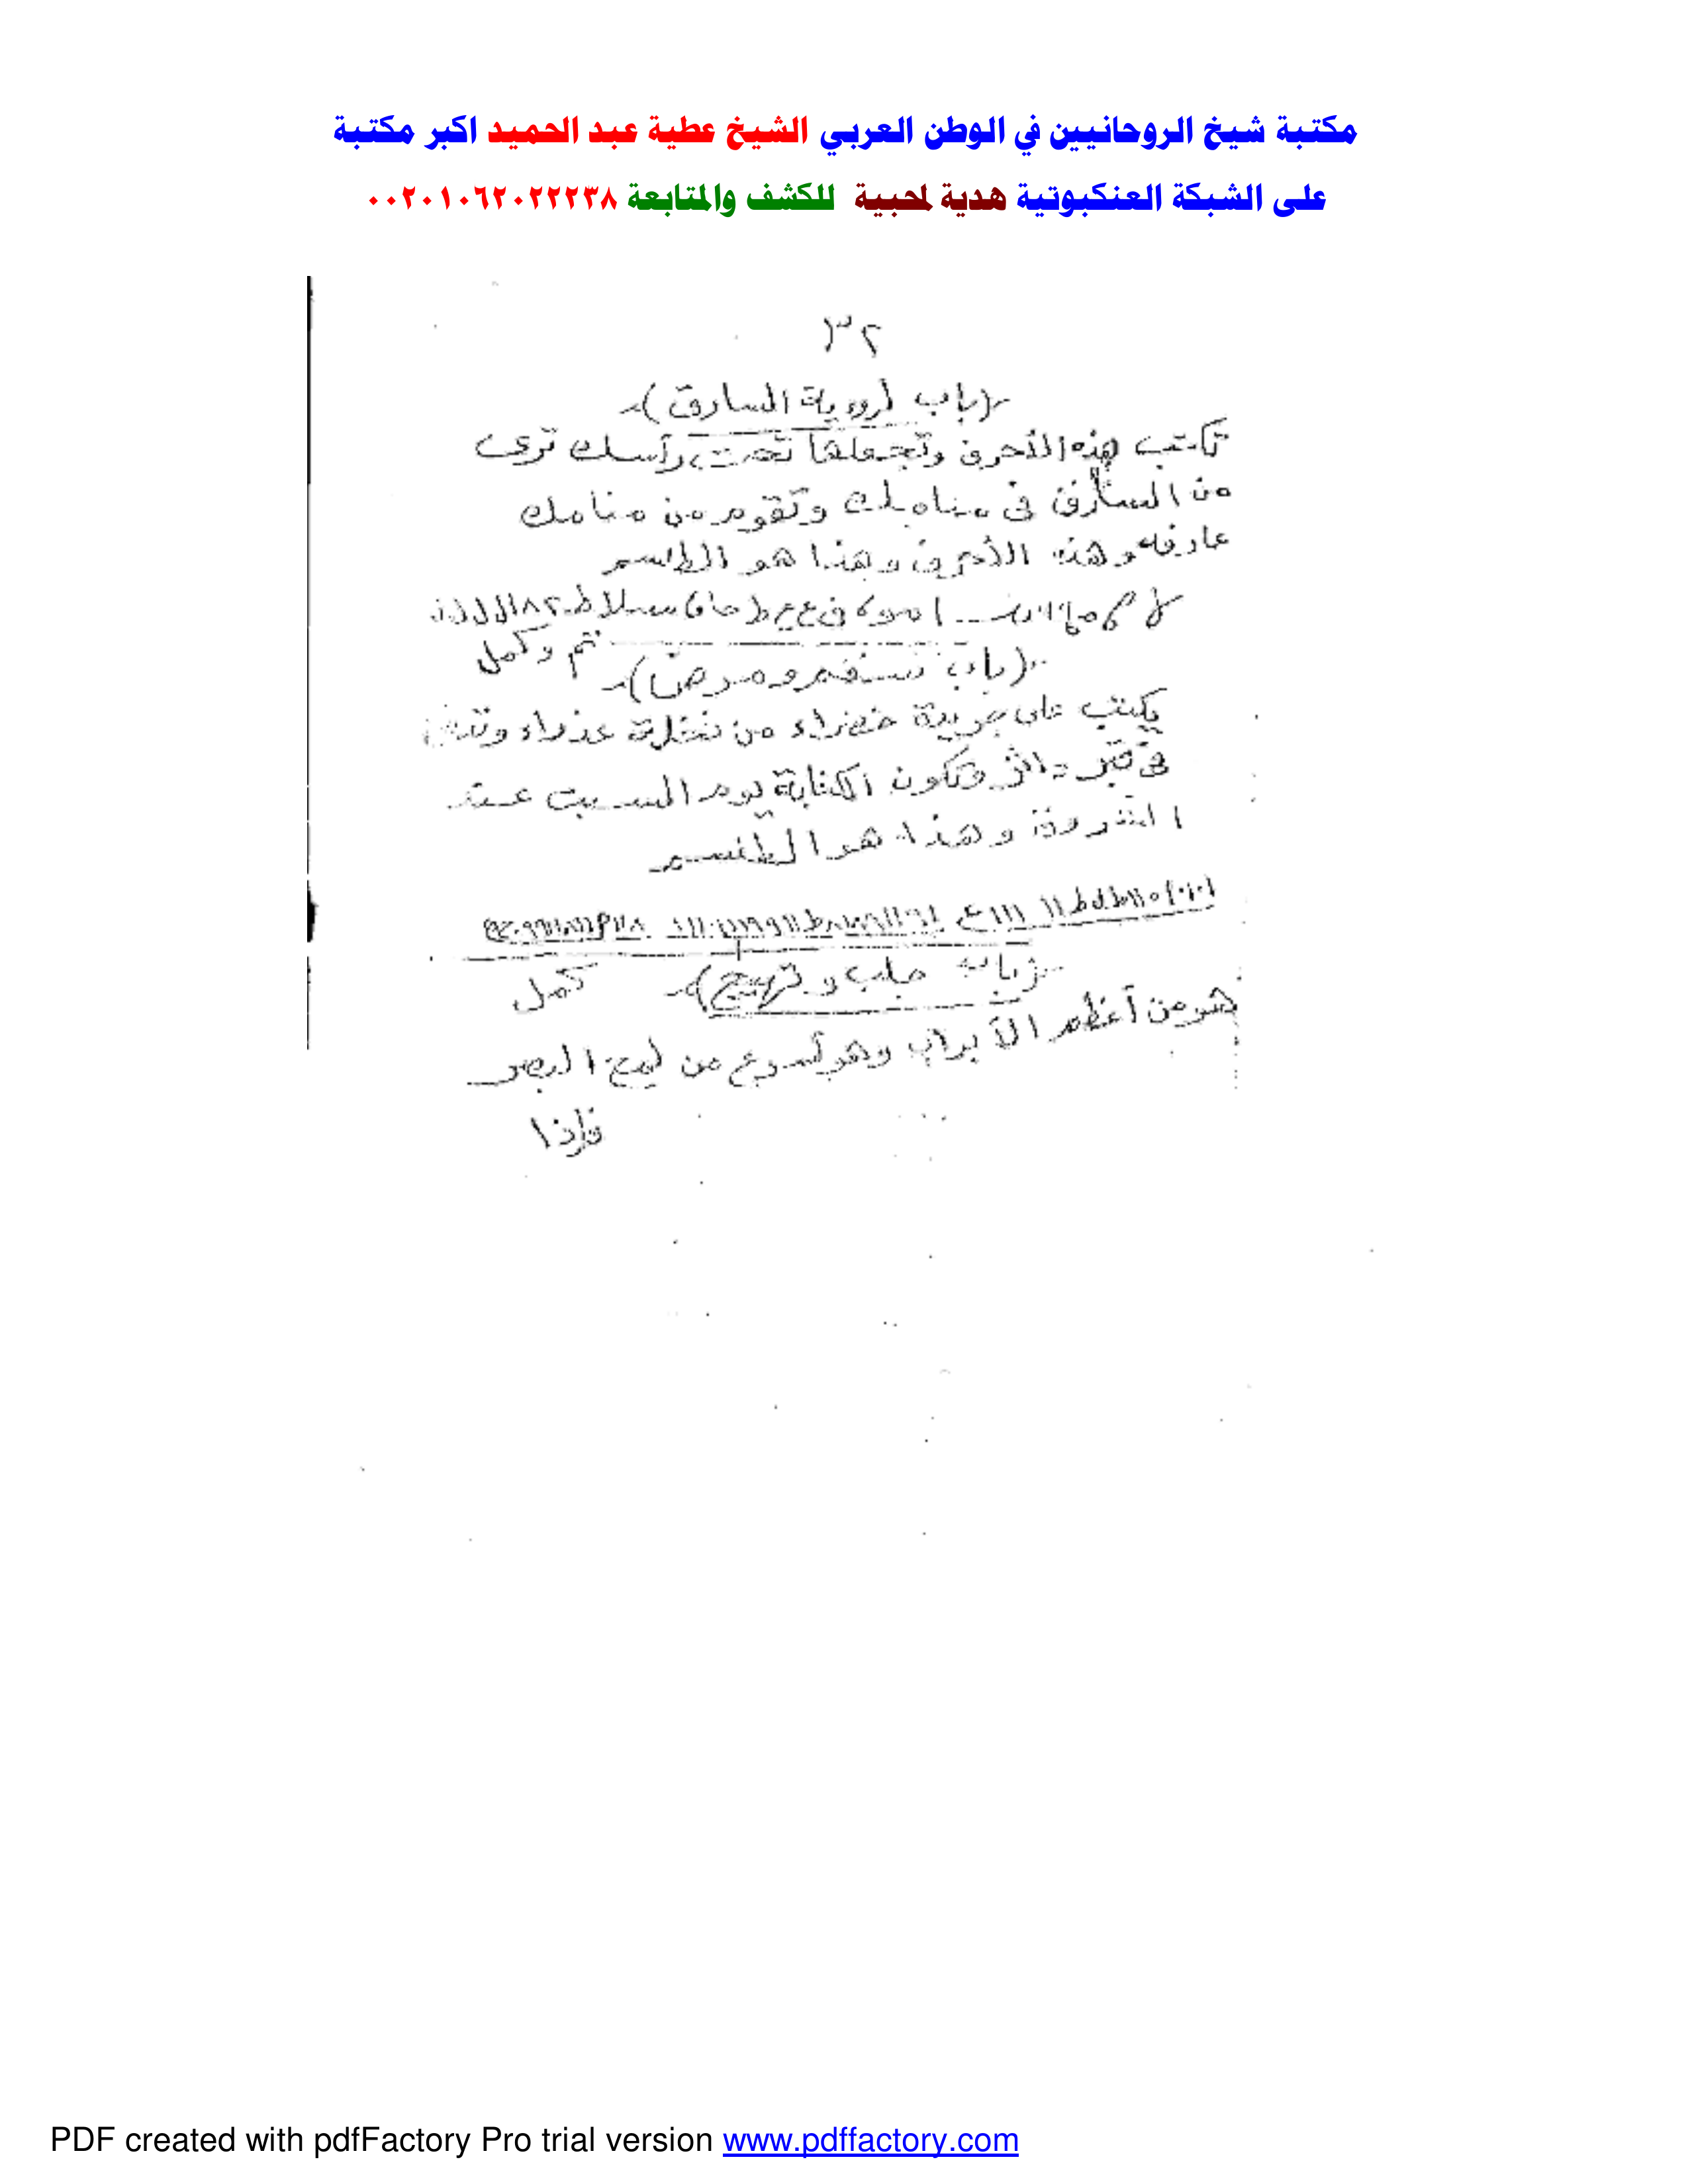 مكتبة شيخ الروحانيين في الوطن العربي الشيخ عطية عبد الحميد اكبر مكتبة
على الشبكة العنكبوتية هدية لمحبية للكشف والمتابعة ٠٠٢٠١٠٦٢٠٢٢٢٣٨
٣٢
(باب لروءية السارق)
تكتب هذه الأحرف وتجعلها تحت رأسك ترى
من السارق في منامك وتقوم من منامك
عارفه وهذه الأحرف وهذا هو الطلسم
تم وكمل
(باب سقم ومرض)
يكتب على جريدة خضراء من نخلة عذراء
في قبر داثر وتكون الكتابة يوم السبت عند
الشروق وهذا هو الطلسم
(باب جلب وتهييج) كمل
هو من أعظم الأبواب وهو أسرع من لمح البصر
فإذا
PDF created with pdfFactory Pro trial version www.pdffactory.com